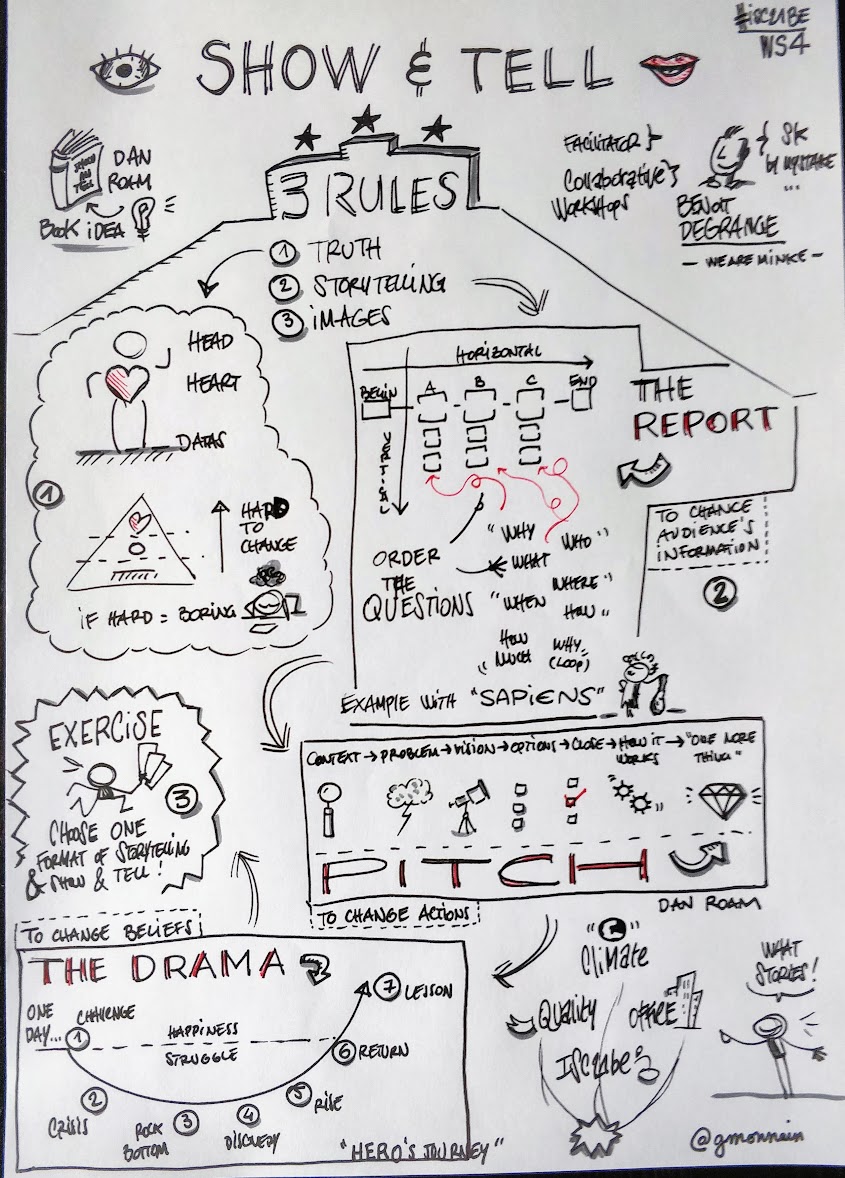 #iSC21BE
WS4
SHOW & TELL
SHOW
AND
TELL
DAN
ROAM
BOOK IDEA
FACILITATOR
COLLABORATIVE
WORKSHOPS
SK
BY MYSTAKE
...
BENOIT
DEGRANGE
— WE ARE MINKE —
3 RULES
1 TRUTH
2 STORYTELLING
3 IMAGES
HEAD
HEART
DATAS
1
HARD
TO
CHANGE
IF HARD = BORING
HORIZONTAL
BEGIN
A
B
C
END
ORDER
THE
QUESTIONS
"WHY
WHO"
WHAT
WHERE"
"WHEN
HOW"
HOW
MUCH
WHY
(LOOP)
EXAMPLE WITH "SAPIENS"
THE
REPORT
TO CHANGE
AUDIENCE'S
INFORMATION
2
EXERCISE
3
CHOOSE ONE
FORMAT OF STORYTELLING
& SHOW & TELL!
CONTEXT → PROBLEM → VISION → OPTIONS → CLOSE → HOW IT WORKS → "ONE MORE THING"
PITCH
DAN ROAM
TO CHANGE ACTIONS
TO CHANGE BELIEFS
THE DRAMA
ONE
DAY...
CHALLENGE
1
HAPPINESS
STRUGGLE
2
CRISIS
3
ROCK
BOTTOM
4
DISCOVERY
5
RISE
6 RETURN
7 LESSON
"HERO'S JOURNEY"
CLIMATE
QUALITY
OFFICE
ISC21BE
WHAT
STORIES!
@gmonnein